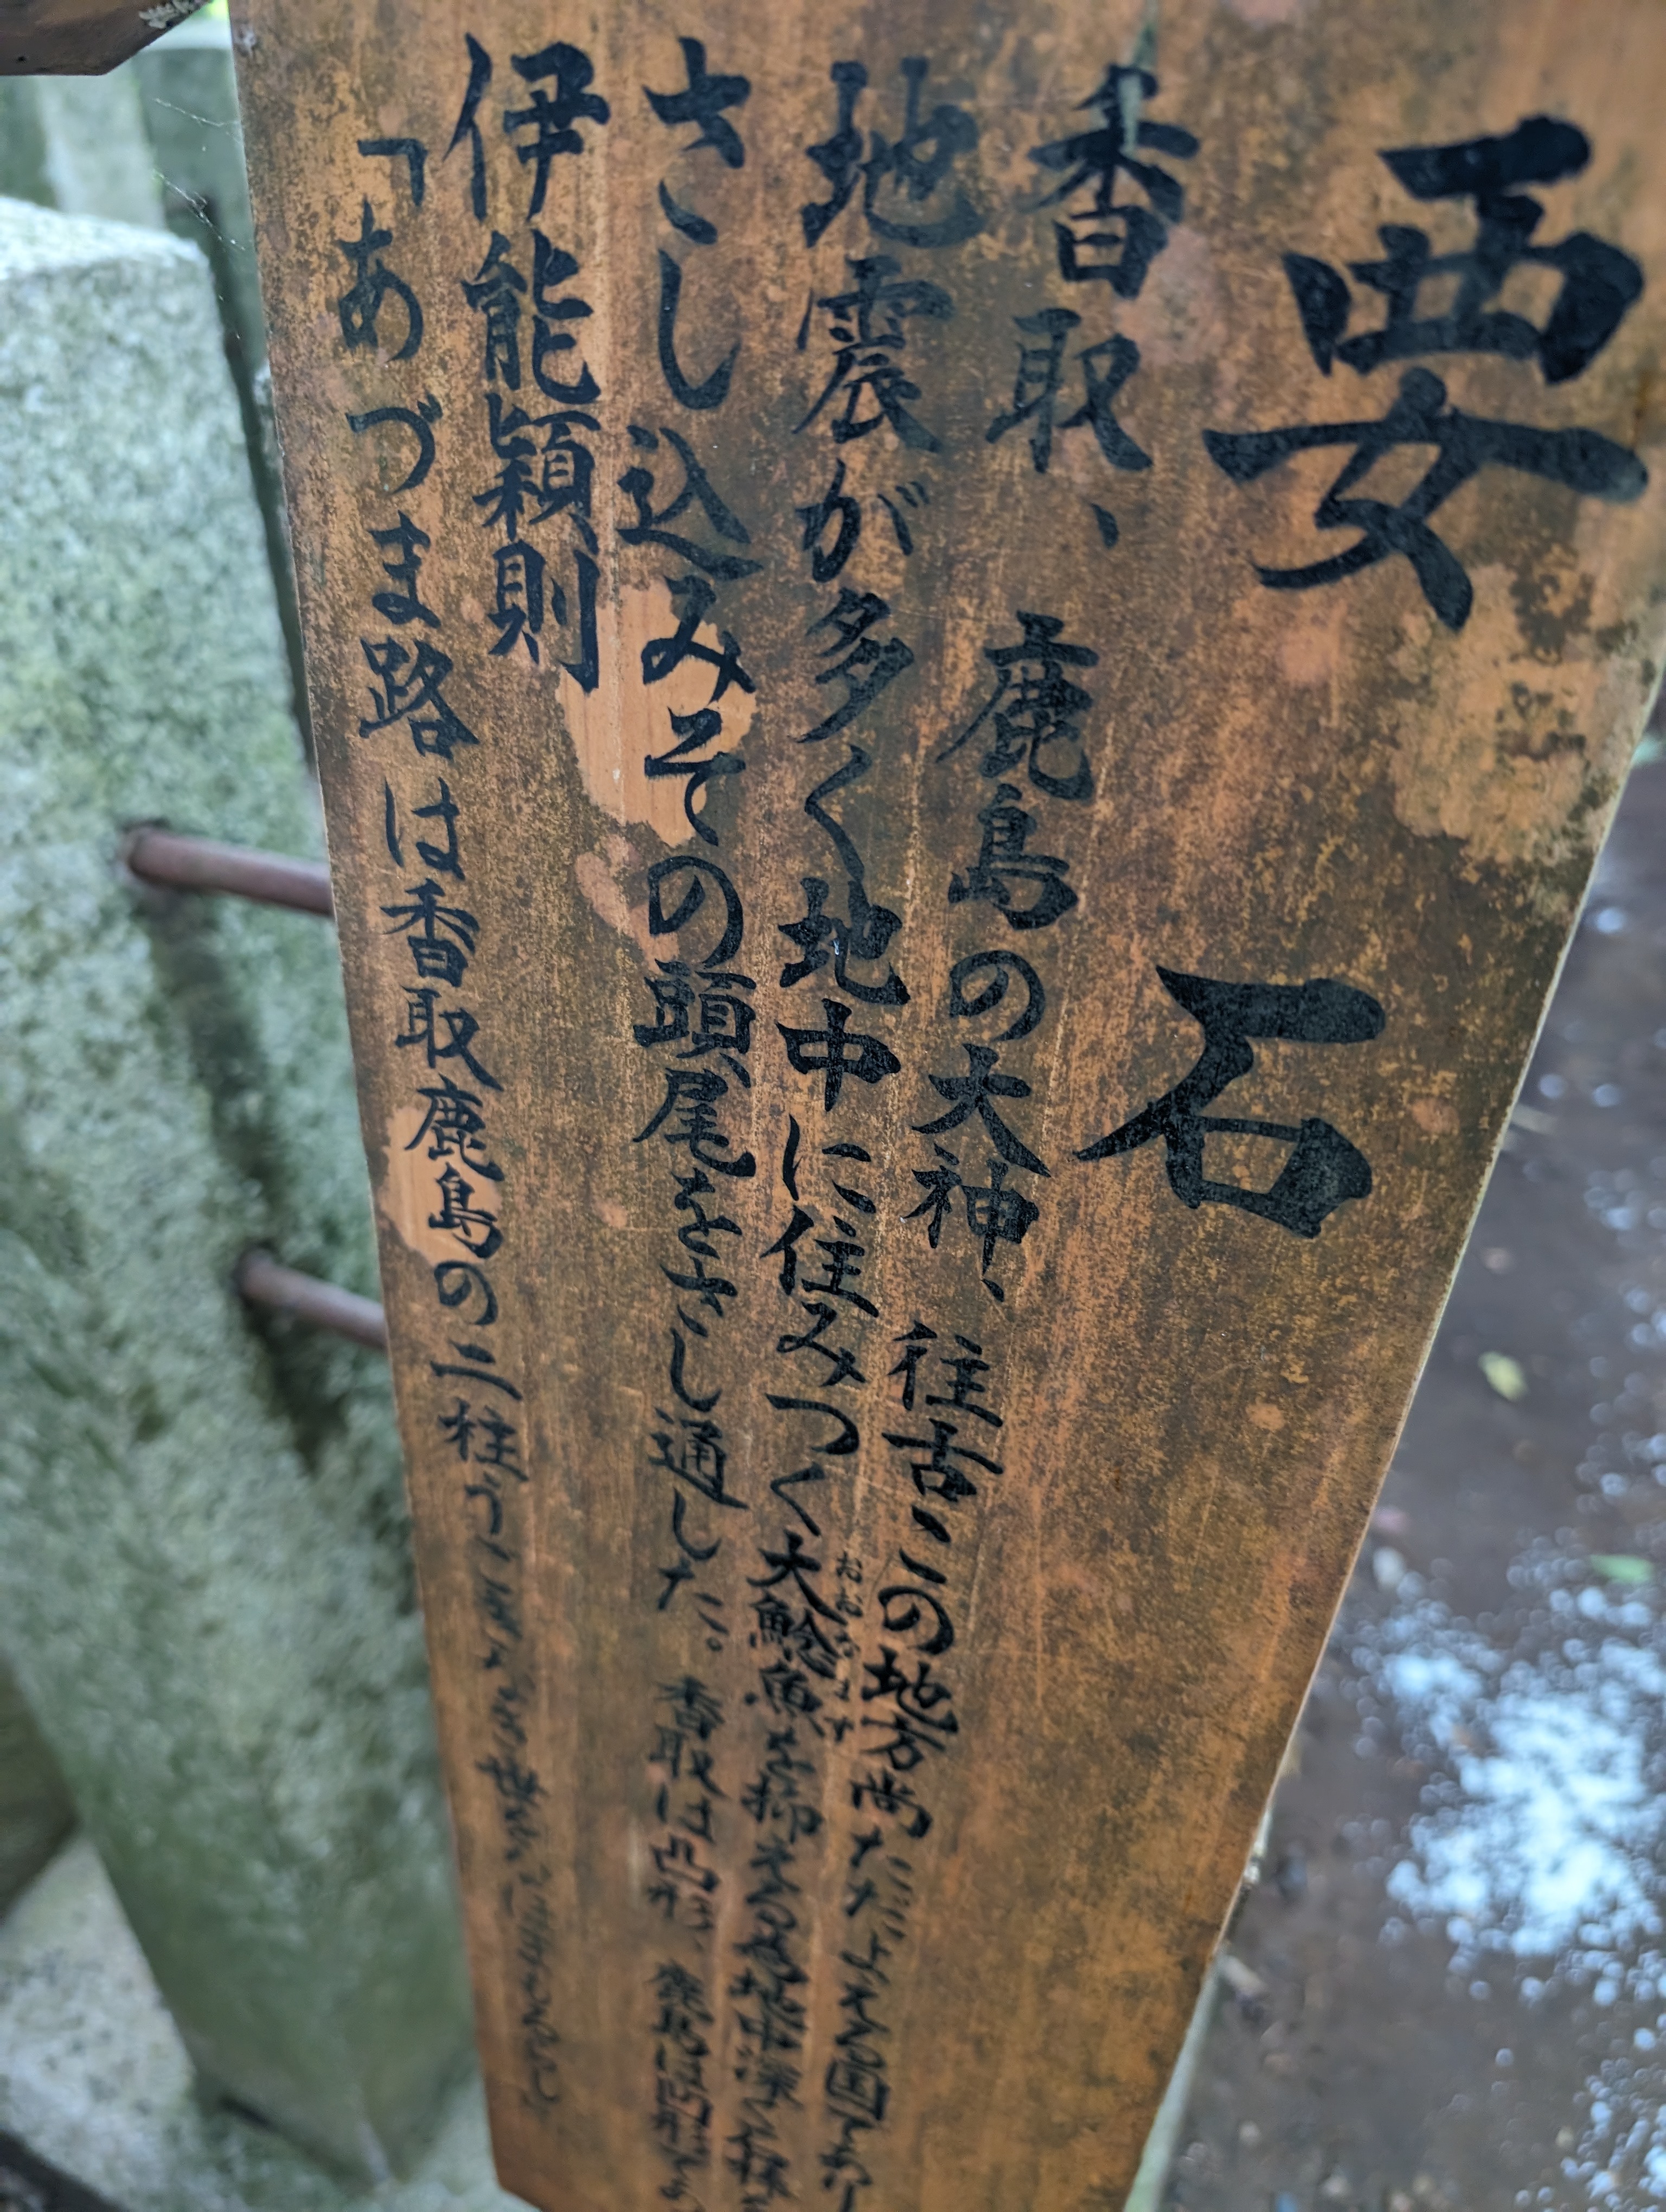 要石
香取、鹿島の大神、往古この地方尚ただよえる国であり
地震が多く地中に住みつく大鯰魚を抑える為地中深く石棒を
さし込みその頭尾をさし通した。香取は凸形、鹿島は凹形で
伊能穎則
「あづま路は香取鹿島の二柱